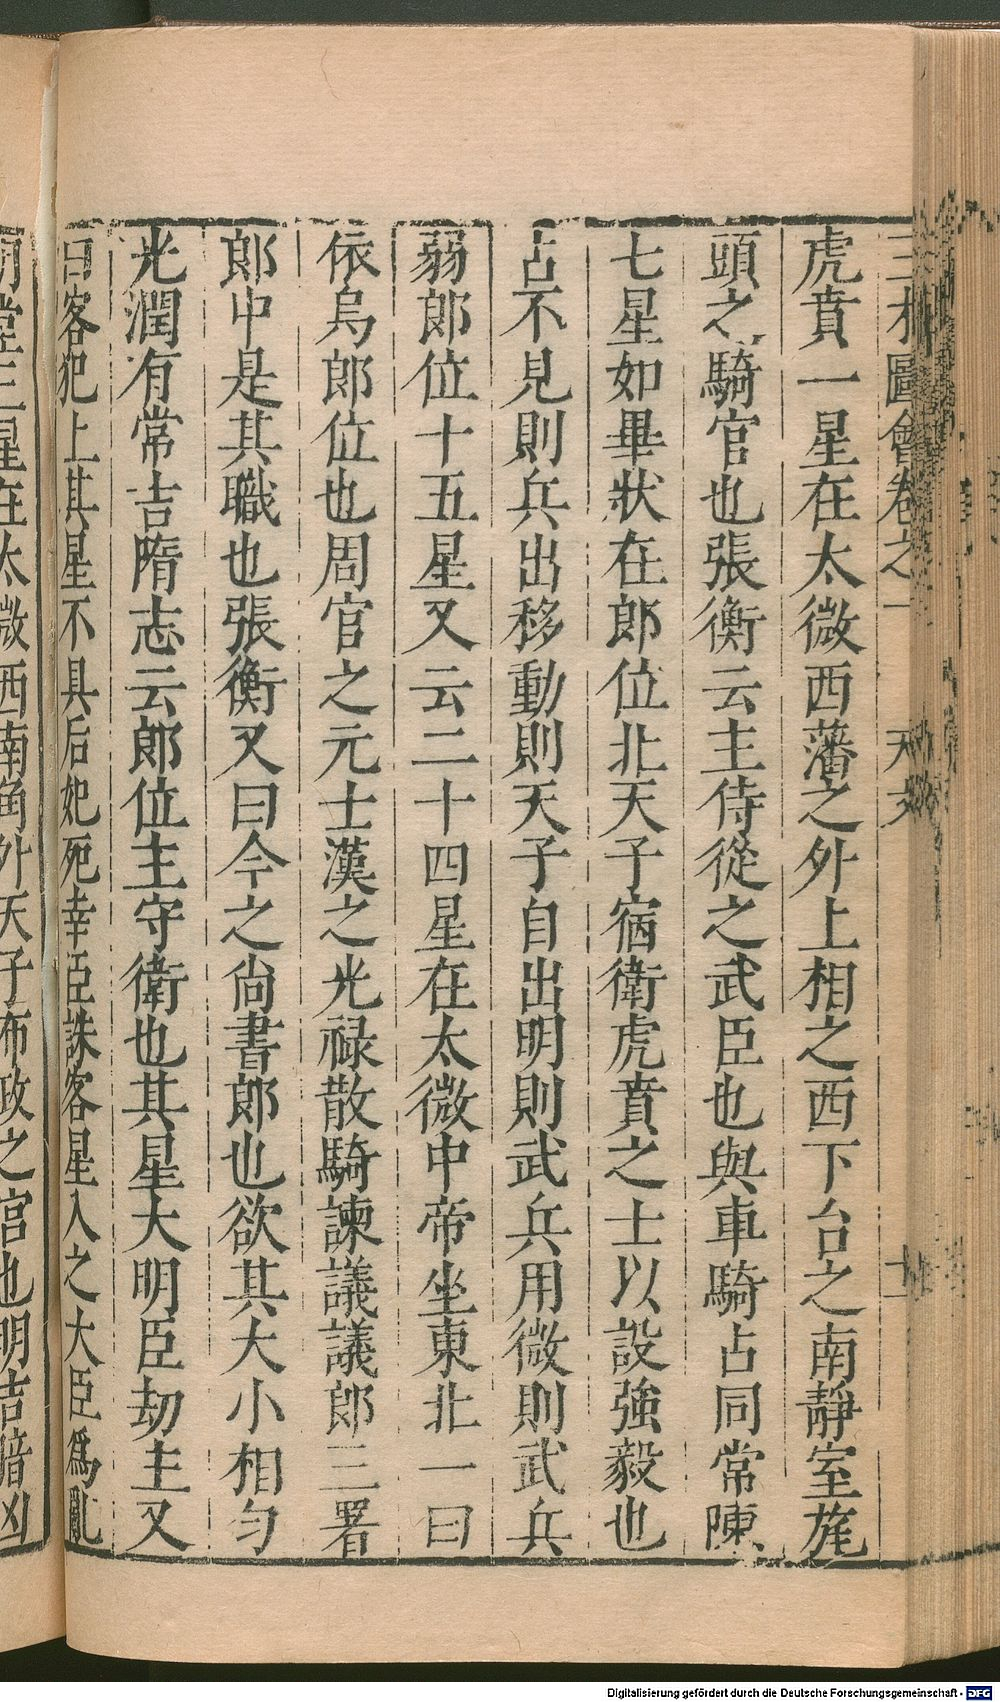 三才圖會卷之一 天文
虎賁一星在太微西藩之外上相之西下台之南靜室旄
頭之騎官也張衡云主侍從之武臣也與車騎占同常陳
七星如畢狀在郎位北天子宿衛虎賁之士以設強毅也
占不見則兵出移動則天子自出明則武兵用微則武兵
弱郎位十五星又云二十四星在太微中帝坐東北一曰
依烏郎位也周官之元士漢之光祿散騎諫議議郎三署
郎中是其職也張衡又曰今之尚書郎也欲其大小相勻
光潤有常吉隋志云郎位主守衛也其星大明臣劫主又
曰客犯上其星不具后妃死幸臣誅客星入之大臣爲亂
明堂三星在太微西南角外天子布政之宮也明吉暗凶
Digitalisierung gefördert durch die Deutsche Forschungsgemeinschaft - DFG